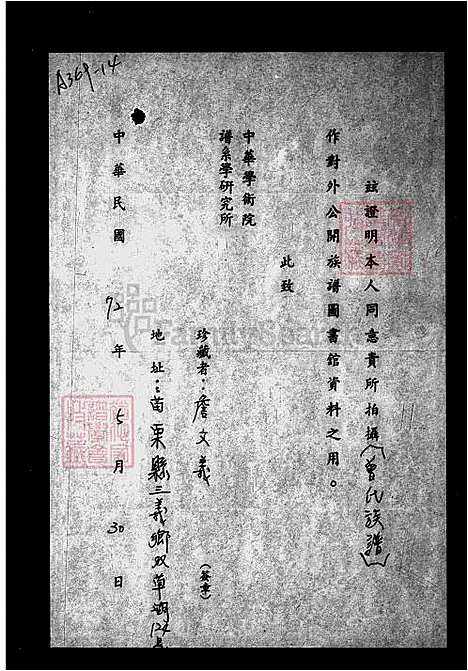 A369-14
玆證明本人同意貴所拍攝（曾氏族譜）
作對外公開族譜圖書館資料之用。
此致
中華學術院
譜系學研究所
珍藏者：詹文義
（簽章）
地址：苗栗縣三義鄉双草湖124
中華民國72年5月30日
FamilySearch